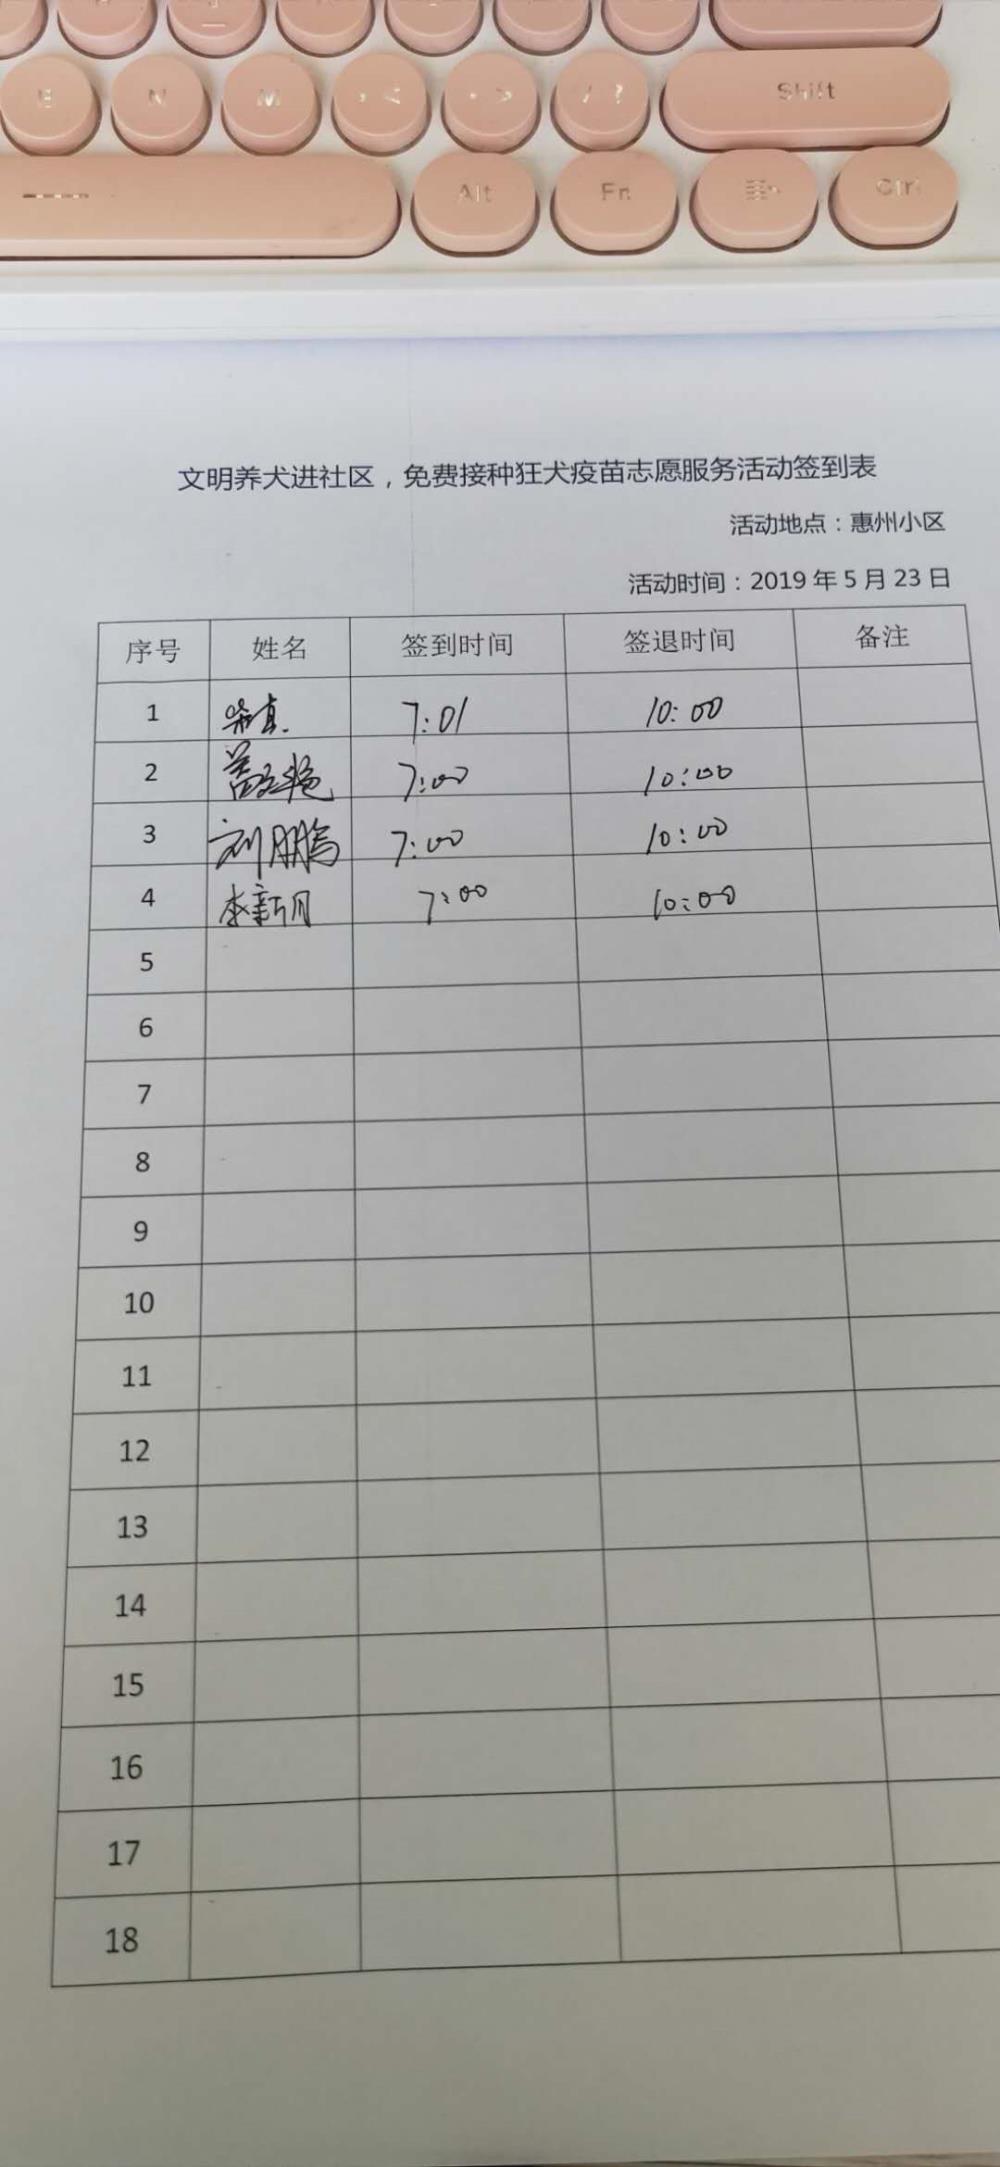 B N M , < . > / ? Shift
Alt Fn Ctrl
文明养犬进社区，免费接种狂犬疫苗志愿服务活动签到表
活动地点：惠州小区
活动时间：2019 年 5 月 23 日
序号 姓名 签到时间 签退时间 备注
1 7:01 10:00
2 7:00 10:00
3 刘鹏鹏 7:00 10:00
4 李新月 7:00 10:00
5
6
7
8
9
10
11
12
13
14
15
16
17
18